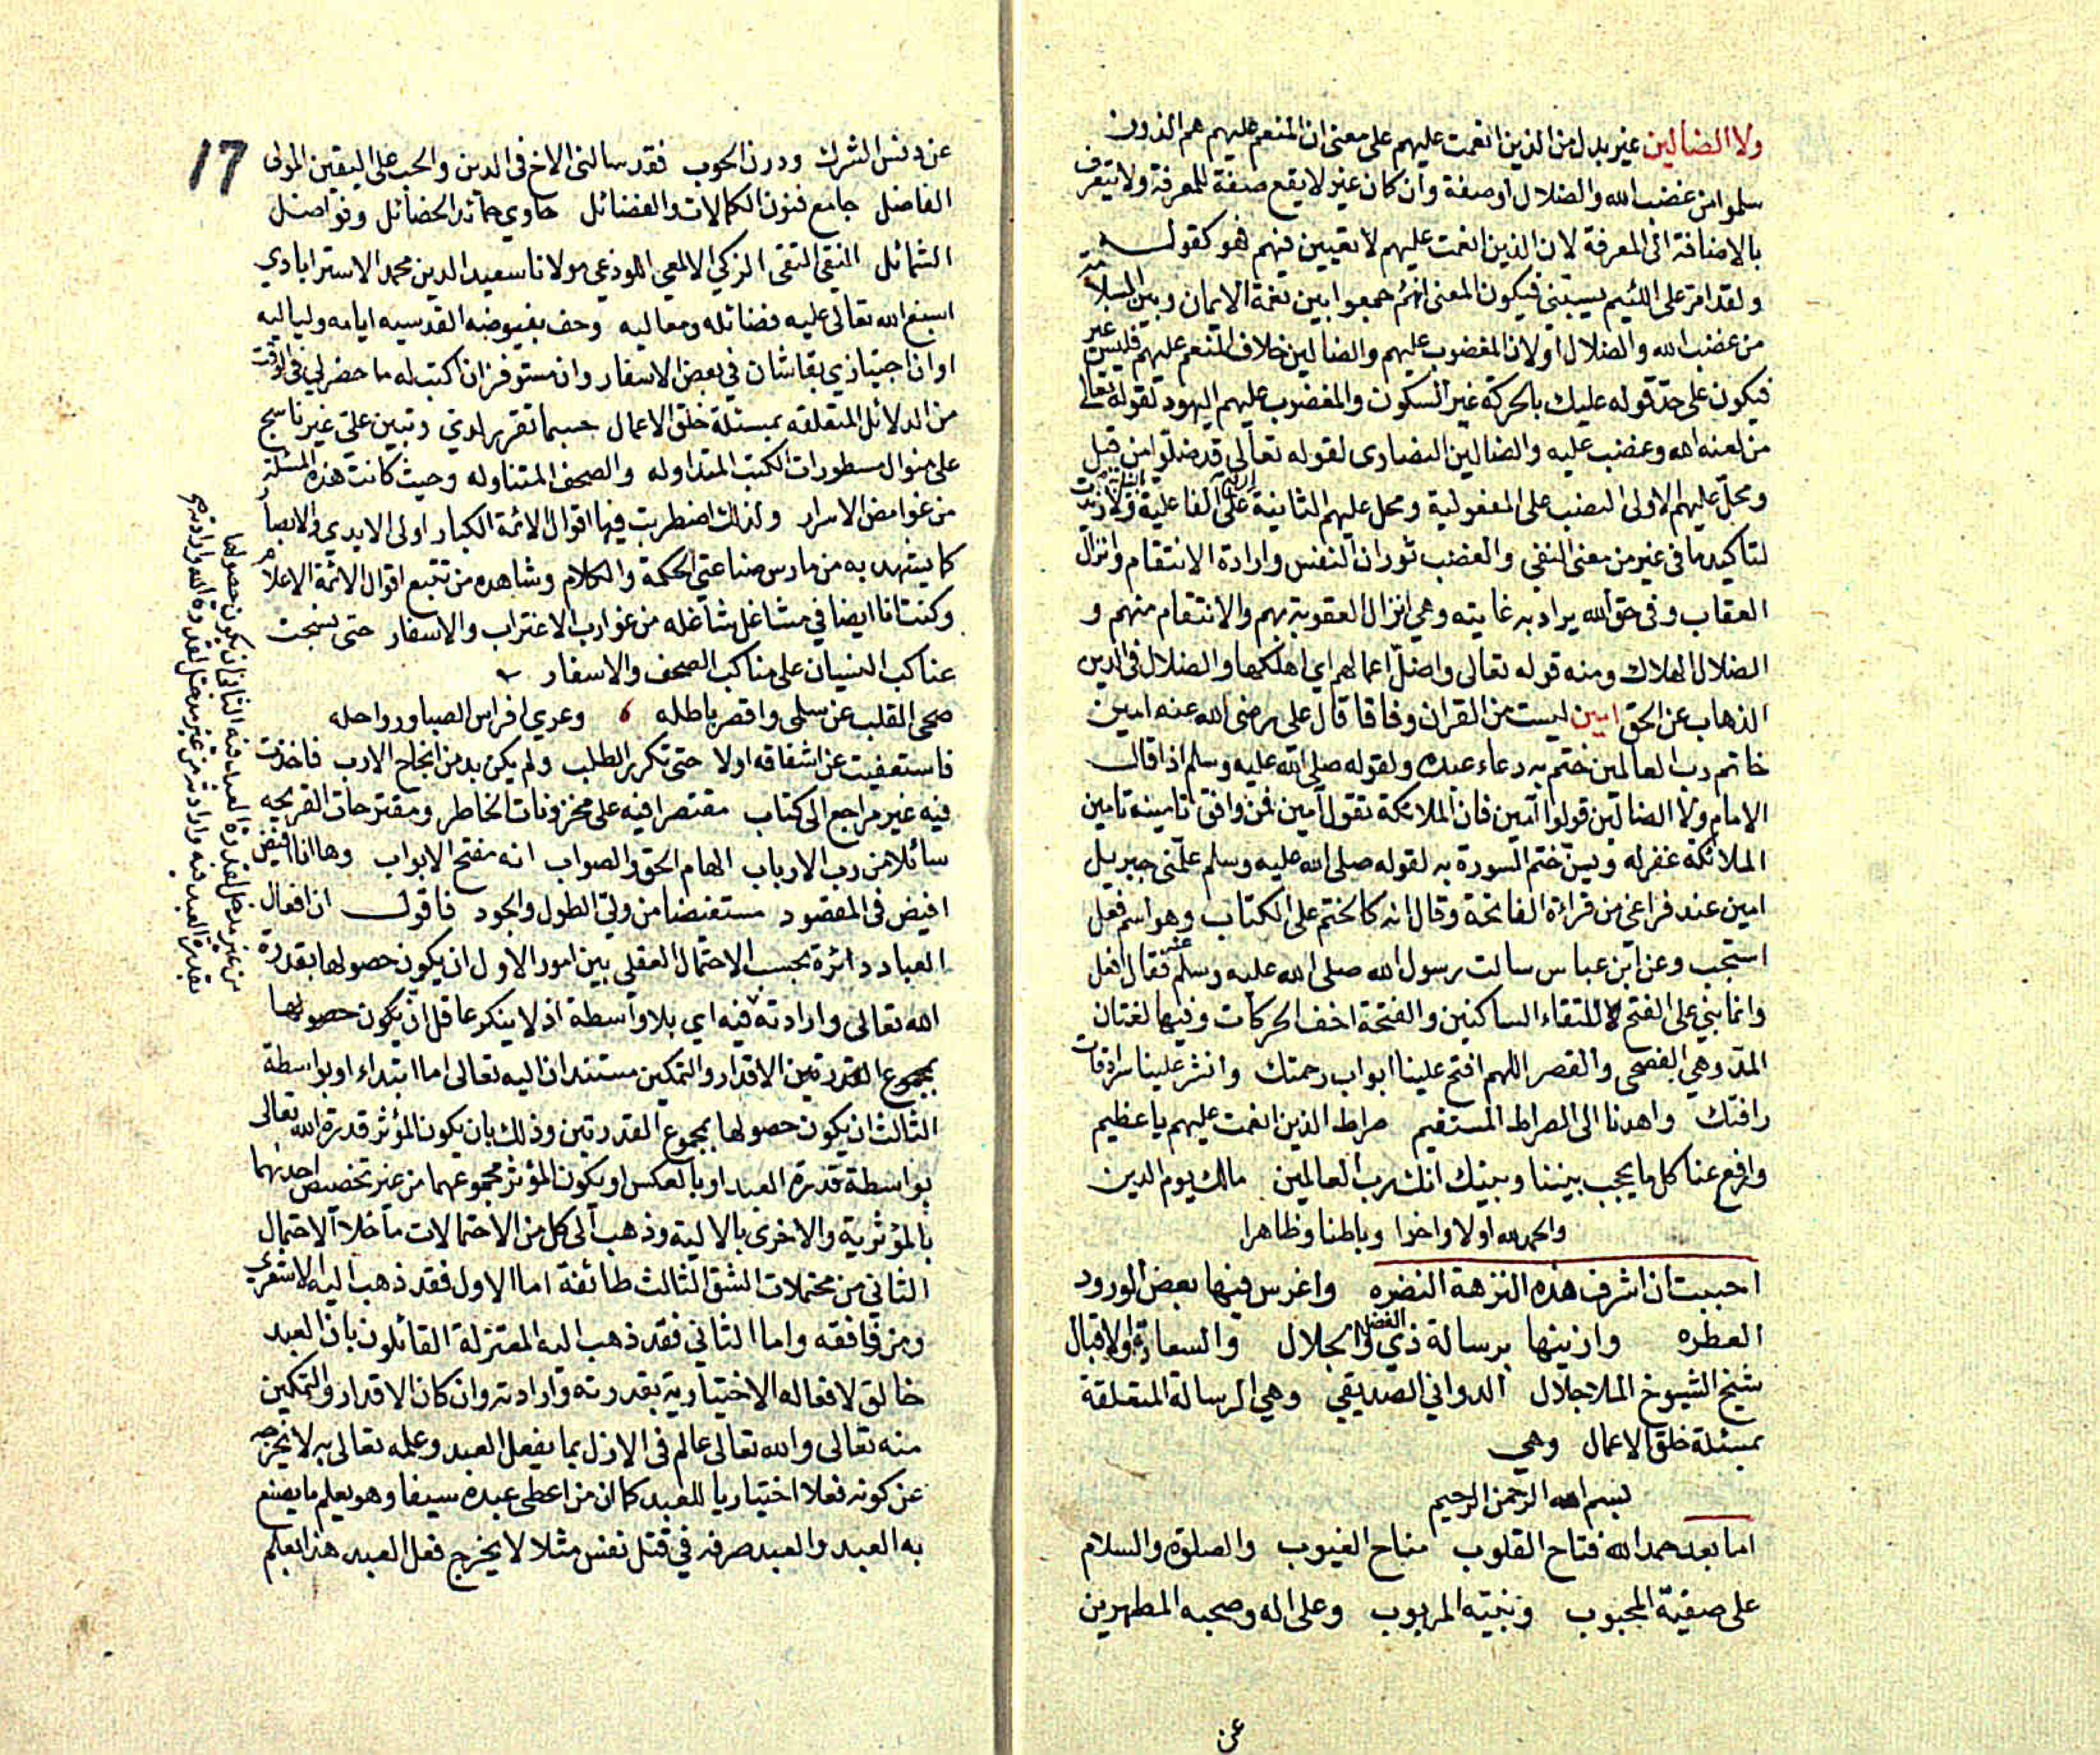 ولا الضالين غير بدل من الذين انعمت عليهم على معنى ان المنعم عليهم هم الذين
سلموا من غضب الله والضلال او صفة وان كان غير لا يقع صفة للمعرفة ولا يتعرف
بالاضافة الى المعرفة لان الذين انعمت عليهم لا تعيين فيهم فهو كقوله
ولقد امر على اللئيم يسبني فيكون المعنى انهم جمعوا بين نعمة الايمان وبين السلامة
من غضب الله والضلال او لان المغضوب عليهم والضالين خلاف المنعم عليهم فليس غير
فيكون على حد قوله عليك بالحركة غير السكون والمغضوب عليهم اليهود لقوله تعالى
من لعنه الله وغضب عليه والضالين النصارى لقوله تعالى قد ضلوا من قبل
ومحل عليهم الاولى النصب على المفعولية ومحل عليهم الثانية على الفاعلية ولا زيدت
لتاكيد ما في غير من معنى النفي والغضب ثوران النفس وارادة الانتقام وانزال
العقاب وفي حق الله يراد به غايته وهي انزال العقوبة بهم والانتقام منهم و
الضلال الهلاك ومنه قوله تعالى واضل اعمالهم اي اهلكها والضلال في الدين
الذهاب عن الحق امين ليست من القران وفاقا قال على رضى الله عنه امين
خاتم رب العالمين ختم به دعاء عبده ولقوله صلى الله عليه وسلم اذا قال
الامام ولا الضالين قولوا امين فان الملائكة تقول آمين فمن وافق تامينه تامين
الملائكة غفر له ويسن ختم السورة به لقوله صلى الله عليه وسلم علمني جبريل
امين عند فراغي من قراءة الفاتحة وقال انه كالختم على الكتاب وهو اسم فعل
استجب وعن ابن عباس سالت رسول الله صلى الله عليه وسلم عنه فقال افعل
وانما بني على الفتح لالتقاء الساكنين والفتحة اخف الحركات وفيها لغتان
المد وهي الفصحى والقصر اللهم افتح علينا ابواب رحمتك وانشر علينا سرادقات
رافتك واهدنا الى الصراط المستقيم صراط الذين انعمت عليهم يا عظيم
وارفع عنا كل ما يحجب بيننا وبينك انك رب العالمين مالك يوم الدين
والحمد لله اولا واخرا وباطنا وظاهرا
احببت ان اشرف هذه النزهة النضره واغرس فيها بعض الورود
العطره وازينها برسالة ذي الفضل والجلال والسعادة والاقبال
شيخ الشيوخ الملا جلال الدواني الصديقي وهي الرسالة المتعلقة
بمسئلة خلق الاعمال وهي
بسم الله الرحمن الرحيم
اما بعد حمد الله فتاح القلوب مناح الغيوب والصلوة والسلام
على صفيه المحبوب ونبيه المربوب وعلى اله وصحبه المطهرين
عن
17
عن دنس الشرك ودرن الحوب فقد سالني الاخ في الدين والحب على اليقين المولى
الفاضل جامع فنون الكمالات والفضائل حاوي حمائد الخصائل وفواضل
الشمائل النقي التقي الزكي الالمعي اللوذعي مولانا سعيد الدين محمد الاستراباذي
اسبغ الله تعالى عليه فضائله ومعاليه وحف بفيوضه القدسيه ايامه ولياليه
اوان اجتيازي بقاشان في بعض الاسفار وان مستوفز ان اكتب له ما حضر لي في الوقت
من الدلائل المتعلقه بمسئلة خلق الاعمال حسبما تقرر لدي وتبين علي غير ناسج
على منوال مسطورات الكتب المتداوله والصحف المتناوله وحيث كانت هذه المسئلة
من غوامض الاسرار ولذلك اضطربت فيها اقوال الائمة الكبار اولى الايدي والابصار
كما يشهد به من مارس صناعتي الحكمة والكلام وشاهده من تتبع اقوال الائمة الاعلام
وكنت انا ايضا في مشاغل شاغله من غوارب الاغتراب والاسفار حتى نسجت
عناكب النسيان على مناكب الصحف والاسفار
صحى القلب عن سلمى واقصر باطله وعري افراس الصبا ورواحله
فاستعفيت عن اشفاقه اولا حتى تكرر الطلب ولم يكن بد من انجاح الارب فاخذت
فيه غير مراجع الى كتاب مقتصرا فيه على مخزونات الخاطر ومقترحات القريحه
سائلا من رب الارباب الهام الحق والصواب انه مفتح الابواب وها انا افيض
افيض في المقصود مستفيضا من ولي الطول والجود فاقول ان افعال
العباد دائرة بحسب الاحتمال العقلي بين امور الاول ان يكون حصولها بقدرة
الله تعالى وارادته فيه اي بلا واسطة اذ لا ينكر عاقل ان يكون حصولها
بمجموع القدرتين الاقدار والتمكين مستندان اليه تعالى اما ابتداء او بواسطة
الثالث ان يكون حصولها بمجموع القدرتين وذلك بان يكون المؤثر قدرة الله تعالى
بواسطة قدرة العبد او بالعكس او يكون المؤثر مجموعهما من غير تخصيص احدهما
بالمؤثرية والاخرى بالالية وذهب الى كل من الاحتمالات ما خلا الاحتمال
الثاني من محتملات الشق الثالث طائفة اما الاول فقد ذهب اليه الاشعري
ومن وافقه واما الثاني فقد ذهب اليه المعتزلة القائلون بان العبد
خالق لافعاله الاختيارية بقدرته وارادته وان كان الاقدار والتمكين
منه تعالى والله تعالى عالم في الازل بما يفعل العبد وعلمه تعالى به لا يخرجه
عن كونه فعلا اختياريا للعبد كما ان من اعطى عبده سيفا وهو يعلم ما يصنع
به العبد والعبد صرفه في قتل نفس مثلا لا يخرج فعل العبد هذا بعلم
من غير مدخل لقدرة العبد فيه الثاني ان يكون حصولها
بقدرة العبد فيه وارادته من غير مدخل لقدرة الله وارادته